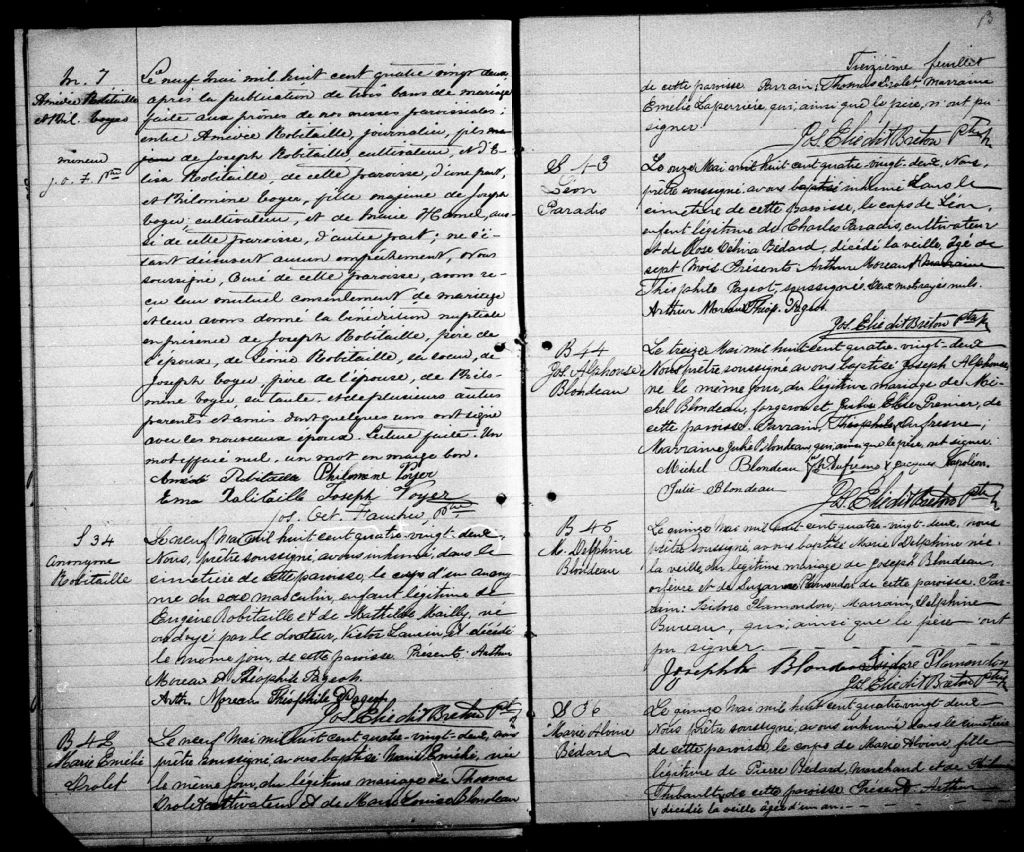 M. 7
Amédée Robitaille
et Phil. Voyer
mineur
j. o. F. Ptre
Le neuf Mai mil huit cent quatre vingt deux,
après la publication de trois bans de mariage
faite aux prônes de nos messes paroissiales,
entre Amédée Robitaille, journalier, fils
de Joseph Robitaille, cultivateur, et d'E-
lisa Robitaille, de cette paroisse, d'une part,
et Philomène Voyer, fille majeure de Joseph
Voyer cultivateur, et de Marie Hamel, aus-
si de cette paroisse, d'autre part; ne s'é-
tant découvert aucun empêchement, Nous
soussigné, Curé de cette paroisse, avons re-
çu leur mutuel consentement de mariage
et leur avons donné la bénédiction nuptiale
en présence de Joseph Robitaille, père de
l'époux, de Robitaille, sa soeur, de
Joseph Voyer, père de l'épouse, de Philo-
mène Voyer sa tante, et de plusieurs autres
parents et amis dont quelques uns ont signé
avec les nouveaux époux. Lecture faite. Un
mot effacé nul, un mot en marge bon.
Philomène Voyer
Ema Robitaille Joseph Voyer
Jos. Oct. Faucher, Ptre
S 34
anonyme
Robitaille
Le neuf Mai mil huit cent quatre-vingt-deux
Nous, prêtre soussigné, avons inhumé dans le
cimetière de cette paroisse, le corps d'un anony-
me du sexe masculin, enfant légitime de
Eugène Robitaille et de Mathilde Mailly, né
ondoyé par le docteur, Victor et décédé
le même jour, de cette paroisse. Présents: Arthur
Moreau et Théophile Pageot.
Arth. Moreau Théophile Pageot
Jos. Elie dit Breton Ptre
B 42
Marie Emélie
Drolet
Le neuf Mai mil huit cent quatre-vingt-deux,
prêtre soussigné, avons baptisé Marie Emélie, née
le même jour, du légitime mariage de Thomas
Drolet cultivateur et de Marie Louise Blondeau
13
Treizième feuillet
de cette paroisse Parrain; Thomas Drolet, Marraine
Emélie Laperrière, qui, ainsi que le père, n'ont pu
signer.
Jos. Elie dit Breton Ptre
S 43
Léon
Paradis
Le onze Mai mil huit cent quatre-vingt-deux, Nous,
prêtre soussigné, avons baptisé inhumé dans le
cimetière de cette Paroisse, le corps de Léon,
enfant légitime de Charles Paradis, cultivateur
et de Rose Bédard, décédé la veille, âgé de
sept Mois Présents Arthur Moreau Marraine
Théophile Pageot, soussignés. Deux mots rayés nuls.
Arthur Moreau Théop. Pageot
Jos. Elie dit Breton Ptre
B 44
Jos. Alphonse
Blondeau
Le treize Mai mil huit cent quatre-vingt-deux
Nous prêtre soussigné avons baptisé Joseph Alphonse,
né le même jour, du légitime mariage de Mi-
chel Blondeau, forgeron et Julie Elise Grenier, de
cette paroisse. Parrain, Théophile Dufresne,
Marraine Julie Blondeau qui, ainsi que le père, ont signer.
Michel Blondeau Th. Dufresne
Julie Blondeau
Jos. Elie dit Breton Ptre
B 45
M. Delphine
Blondeau
Le quinze Mai mil huit cent quatre-vingt-deux, nous
prêtre soussigné, avons baptisé Marie Delphine née
la veille du légitime mariage de Joseph Blondeau
orfèvre et de Suzanne Plamondon de cette paroisse. Par-
rain: Isidore Plamondon; Marraine, Delphine
Bureau, qui, ainsi que le père ont
pu signer.
Joseph Blondeau Isidore Plamondon
Jos. Elie dit Breton Ptre
S 36
Marie Alvine
Bédard
Le quinze Mai mil huit cent quatre-vingt-deux
Nous prêtre soussigné, avons inhumé dans le cimetière
de cette paroisse, le corps de Marie Alvine fille
légitime de Pierre Bédard, Marchand et de
Thibault, de cette paroisse Présents Arthur
x décédée la veille âgée d'un an.